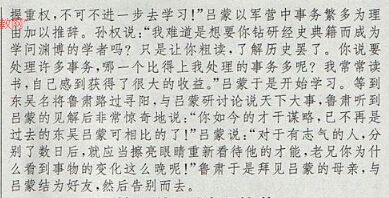 握重权，不可不进一步去学习！”吕蒙以军营中事务繁多为理
由加以推辞。孙权说：“我难道是想要你钻研经史典籍而成为
学问渊博的学者吗？只是让你粗读，了解历史罢了。你说要
处理许多事务，哪一个比得上我处理的事务多呢？我常常读
书，自己感到获得了很大的收益。”吕蒙于是开始学习。等到
东吴名将鲁肃路过寻阳，与吕蒙研讨论说天下大事，鲁肃听到
吕蒙的见解后非常惊奇地说：“你如今的才干谋略，已不再是
过去的东吴吕蒙可相比的了！”吕蒙说：“对于有志气的人，分
别了数日后，就应当擦亮眼睛重新看待他的才能，老兄你为什
么看到事物的变化这么晚呢！”鲁肃于是拜见吕蒙的母亲，与
吕蒙结为好友，然后告别而去。